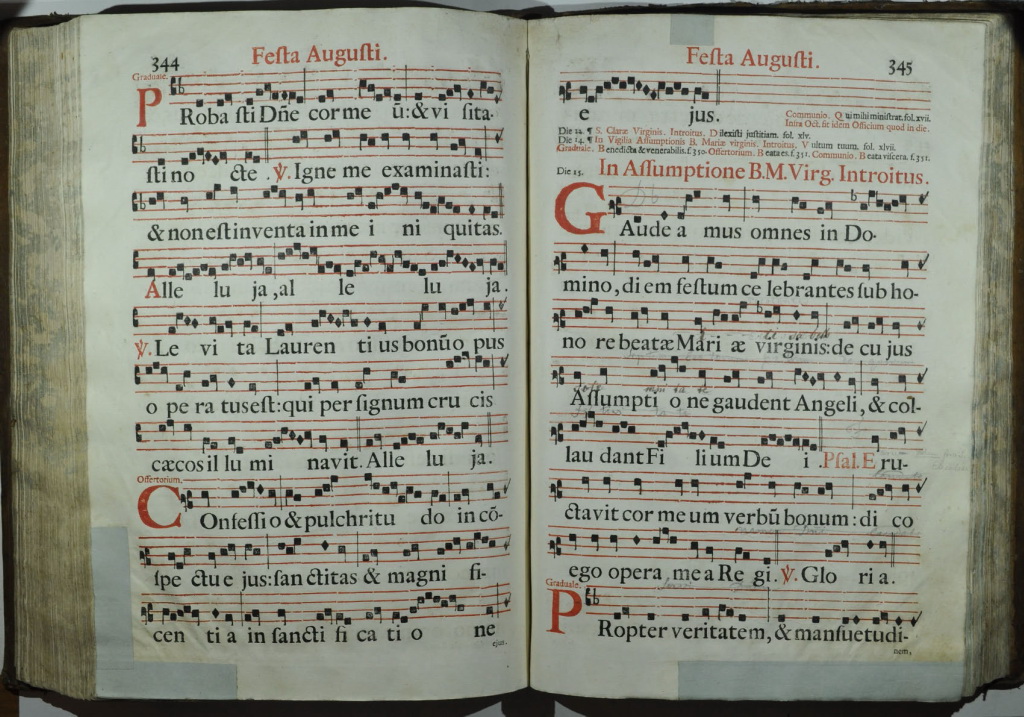 344
Festa Augusti.
Graduale.
PRoba sti Dñe cor me ũ: & vi sita-
sti no cte. ℣. Igne me examinasti:
& non est inventa in me i ni quitas.
Alle lu ja, al le lu ja.
℣. Le vi ta Lauren ti us bonũ o pus
o pe ra tus est: qui per signum cru cis
cæcos il lu mi navit. Alle lu ja.
Offertorium.
COnfessi o & pulchritu do in cõ-
spe ctu e jus: san ctitas & magni fi-
cen ti a in sancti fi ca ti o ne
ejus.
Festa Augusti.
345
e jus.
Communio. Qui mihi ministrat. fol. xvii.
Infra Oct. fit idem Officium quod in die.
Die 12. ¶ S. Claræ Virginis. Introitus. Dilexisti justitiam. fol. xlv.
Die 14. ¶ In Vigilia Assumptionis B. Mariæ virginis. Introitus, Vultum tuum. fol. xlvii.
Graduale. Benedicta & venerabilis. f. 350. Offertorium. Beata es. f. 351. Communio. Beata viscera. f. 351.
Die 15. In Assumptione B.M. Virg. Introitus.
GAude a mus omnes in Do-
mino, di em festum ce lebrantes sub ho-
no re beatæ Mari æ virginis: de cu jus
Assumpti o ne gaudent Angeli, & col-
lau dant Fi li um De i. Psal. E ru-
ctavit cor me um verbũ bonum: di co
ego opera me a Re gi. ℣. Glo ri a.
Graduale.
PRopter veritatem, & mansuetudi-
nem,